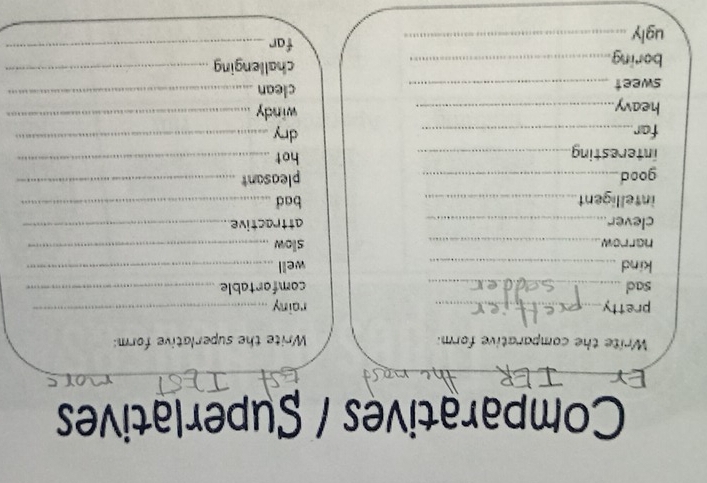 Comparatives / Superlatives
Er IER the most Est IEST more
Write the comparative form:
pretty prettier
sad sadder
kind
narrow
clever
intelligent
good
interesting
far
heavy
sweet
boring
ugly
Write the superlative form:
rainy
comfortable
well
slow
attractive
bad
pleasant
hot
dry
windy
clean
challenging
far